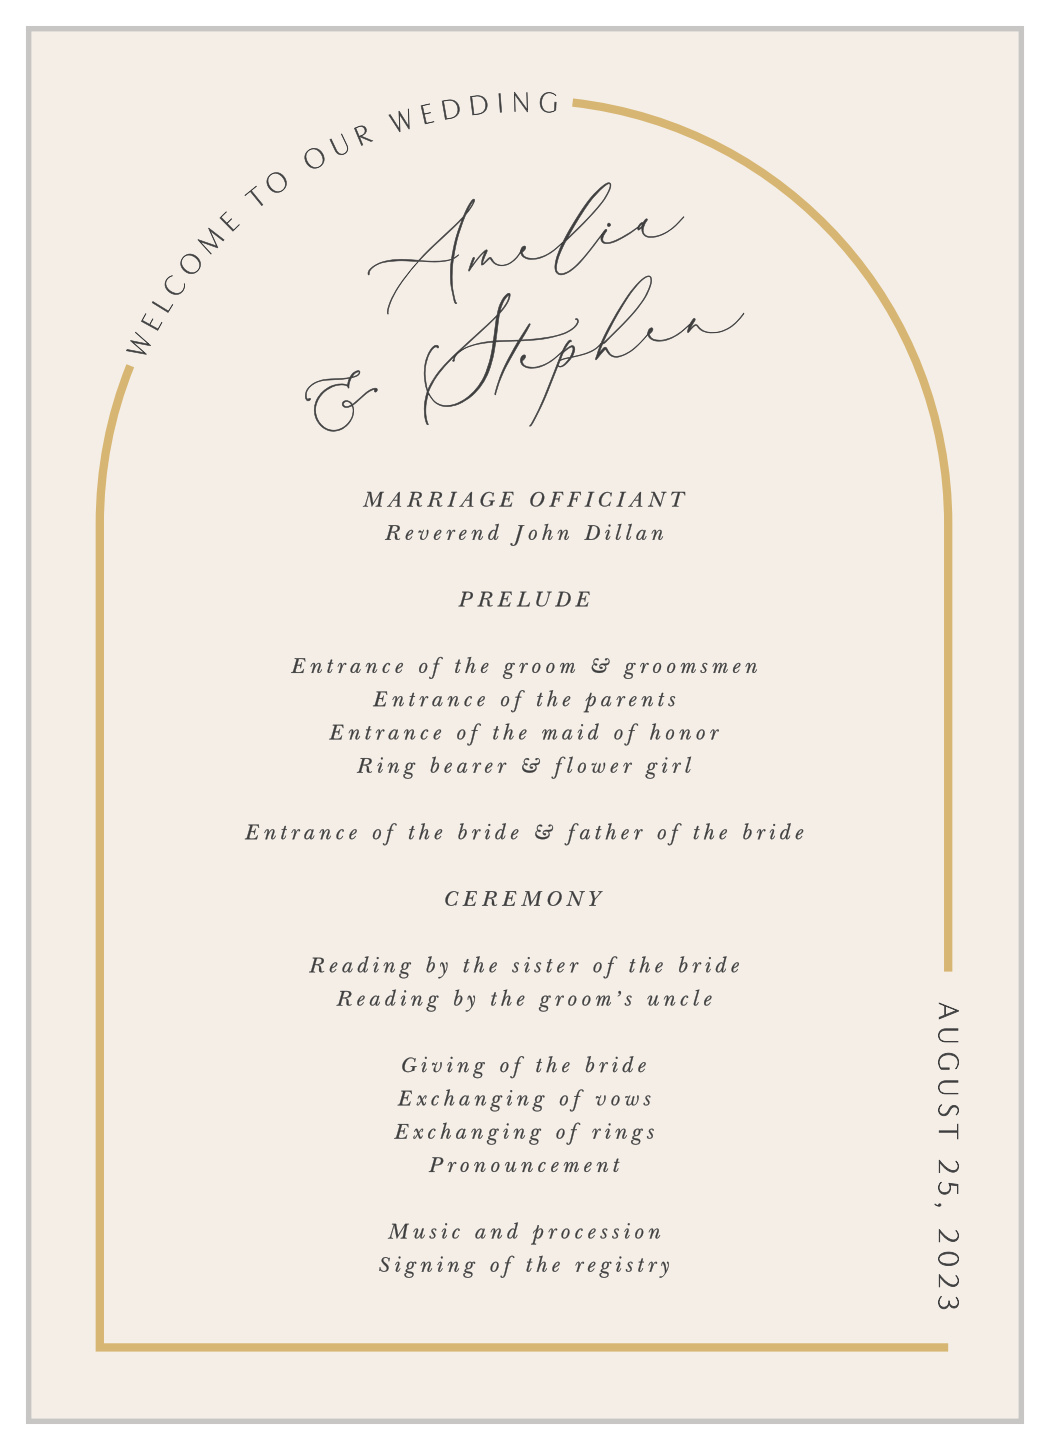 WELCOME TO OUR WEDDING
Amelia
& Stephen
MARRIAGE OFFICIANT
Reverend John Dillan
PRELUDE
Entrance of the groom & groomsmen
Entrance of the parents
Entrance of the maid of honor
Ring bearer & flower girl
Entrance of the bride & father of the bride
CEREMONY
Reading by the sister of the bride
Reading by the groom’s uncle
Giving of the bride
Exchanging of vows
Exchanging of rings
Pronouncement
Music and procession
Signing of the registry
AUGUST 25, 2023